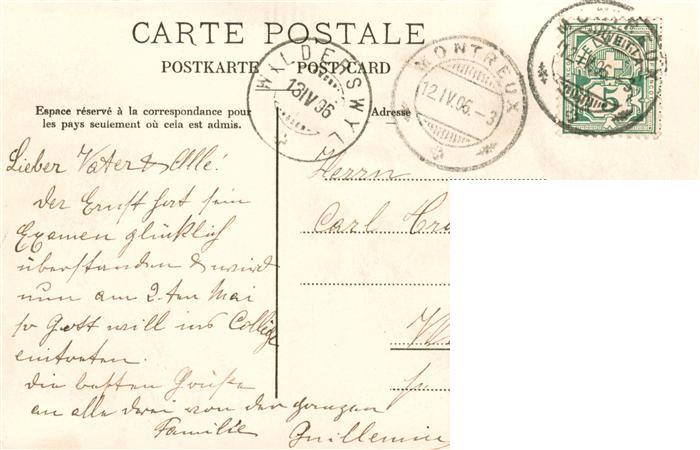 CARTE POSTALE
POSTKARTE POST-CARD
Espace réservé à la correspondance pour
les pays seulement où cela est admis.
Adresse
WILDERSWYL
13 IV 06
MONTREUX
12.IV.06.-3
MONTREUX
5
Lieber Vater & Alle!
Der Ernst hat sein
Examen glücklich
überstanden & wird
nun am 2.ten Mai
so Gott will ins Collège
eintreten.
die besten Grüße
an alle drei von der ganzen
Familie Guillemin
Herrn
Carl